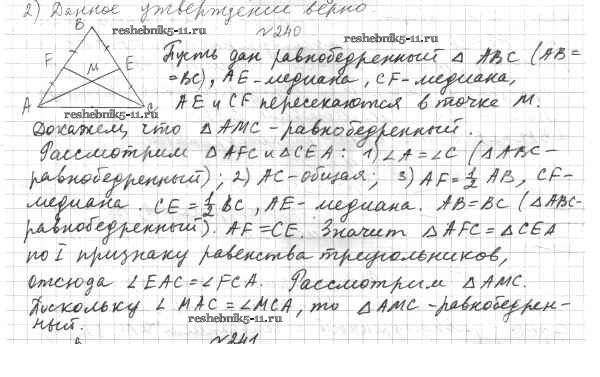 2) Данное утверждение верно.
reshebnik5-11.ru
№240
B
F
E
M
A
C
reshebnik5-11.ru
Пусть дан равнобедренный △ ABC (AB=
=BC), AE-медиана, CF-медиана,
AE и CF пересекаются в точке M.
Докажем, что △AMC - равнобедренный.
Рассмотрим △AFC и △CEA: 1) ∠A=∠C (△ABC-
равнобедренный); 2) AC-общая; 3) AF=½ AB, CF-
медиана. CE=½ BC, AE- медиана. AB=BC (△ABC-
равнобедренный). AF=CE. Значит △AFC=△CEA
по I признаку равенства треугольников,
отсюда ∠EAC=∠FCA. Рассмотрим △AMC.
Поскольку ∠MAC=∠MCA, то △AMC-равнобедрен-
ный.
reshebnik5-11.ru
№241